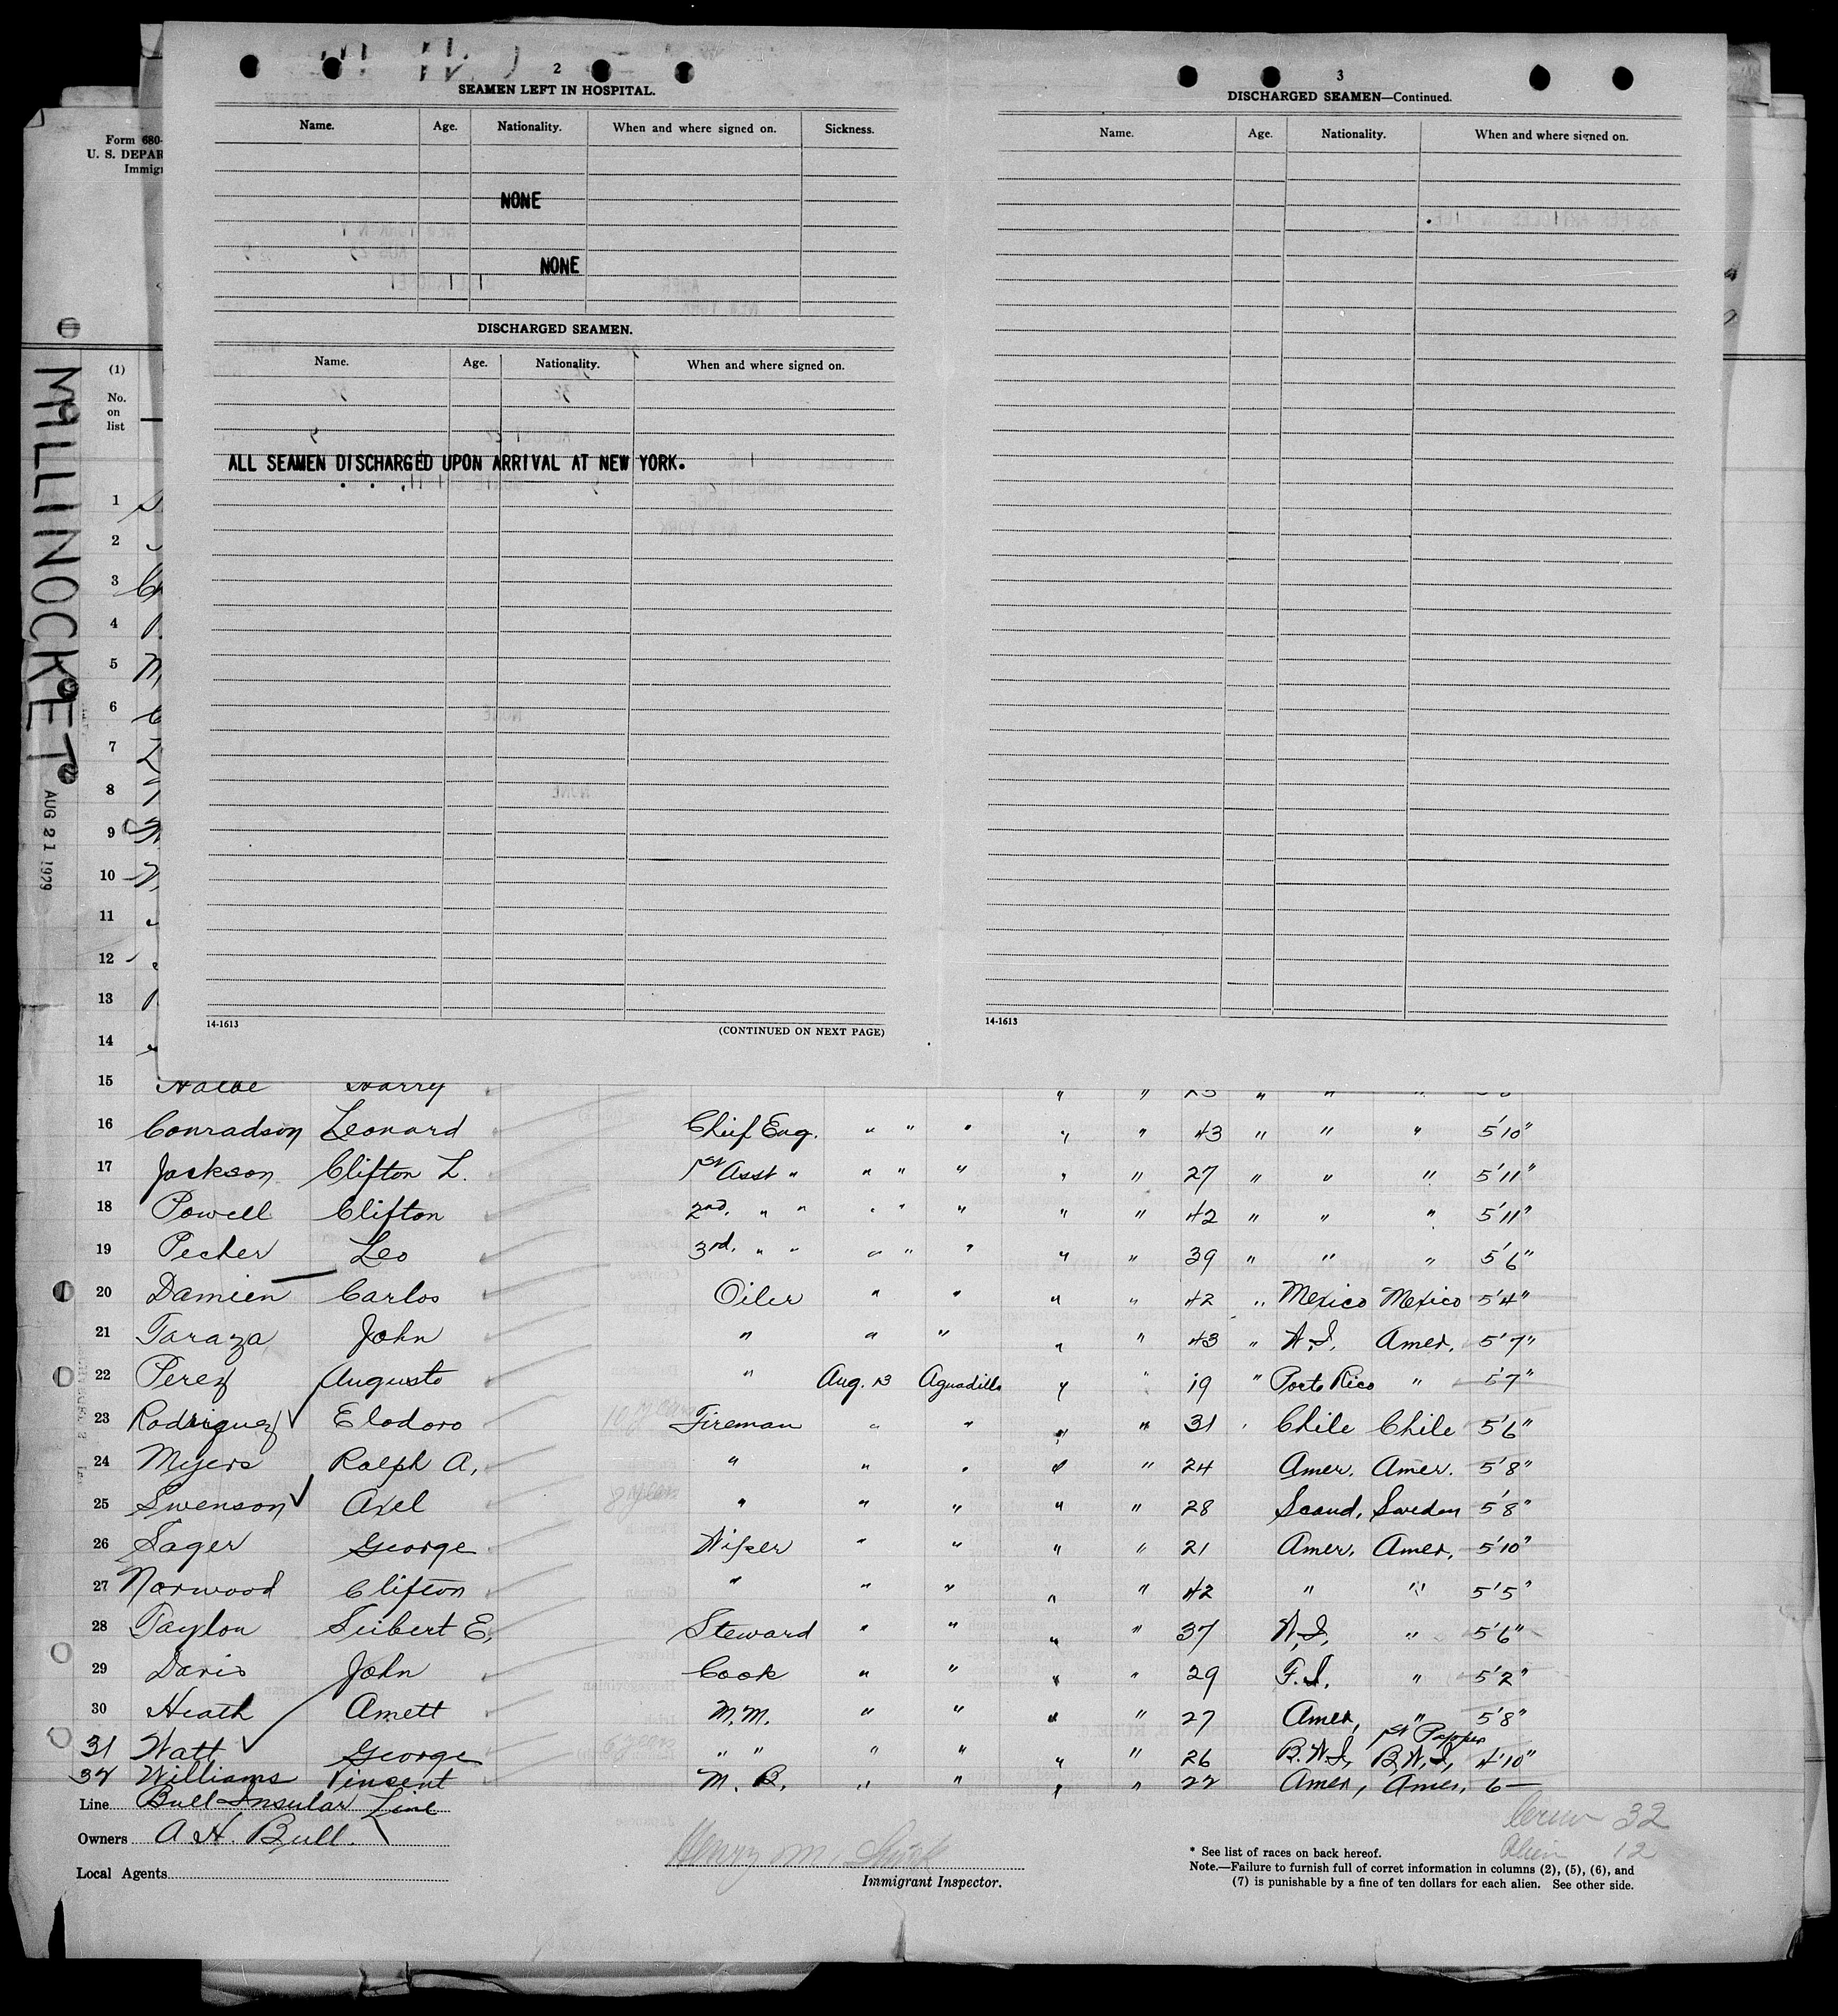 2
SEAMEN LEFT IN HOSPITAL.
Name. Age. Nationality. When and where signed on. Sickness.
NONE
NONE
DISCHARGED SEAMEN.
Name. Age. Nationality. When and where signed on.
ALL SEAMEN DISCHARGED UPON ARRIVAL AT NEW YORK.
14-1613 (CONTINUED ON NEXT PAGE)
3
DISCHARGED SEAMEN—Continued.
Name. Age. Nationality. When and where signed on.
14-1613
Form 680-
U. S. DEPAR
Immigr
MILLINOCKET
AUG 21 1929
(1)
No.
on
list
1
2
3
4
5
6
7
8
9
10
11
12
13
14
15 Harry
16 Conradson Leonard Chief Eng. " " " " " 43 " " " 5'10"
17 Jackson Clifton L. 1st Asst " " " " " " 27 " " " 5'11"
18 Powell Clifton 2nd. " " " " " " " 42 " " " 5'11"
19 Pecher Leo 3rd. " " " " " " " 39 " " " 5'6"
20 Damien Carlos Oiler " " " " 42 " Mexico Mexico 5'4"
21 Taraza John " " " " " 43 " W.I. Amer. 5'7"
22 Perez Augusto " Aug. 13 Aguadilla " " 19 " Porto Rico " 5'7"
23 Rodriguez Elodoro Fireman " " " " 31 " Chile Chile 5'6"
24 Myers Ralph A. " " " " " 24 Amer. Amer. 5'8"
25 Swenson Axel 8 years " " " " " 28 Scand. Sweden 5'8"
26 Sager George Wiper " " " " 21 Amer. Amer. 5'10"
27 Norwood Clifton " " " " " 42 " " 5'5"
28 Taylor Seibert E. Steward " " " " 37 W.I. " 5'6"
29 Davis John Cook " " " " 29 F.I. " 5'2"
30 Heath Amett M.M. " " " " 27 Amer. " 5'8"
1st Papers
31 Watt George " " " " " " 26 B.W.I. B.W.I. 4'10"
32 Williams Vincent M.B. " " " " 22 Amer, Amer. 6—
Line Bull Insular Line
Owners A H. Bull.
Local Agents
Henry M.
Immigrant Inspector.
Crew 32
Alien 12
* See list of races on back hereof.
Note.—Failure to furnish full of corret information in columns (2), (5), (6), and
(7) is punishable by a fine of ten dollars for each alien. See other side.